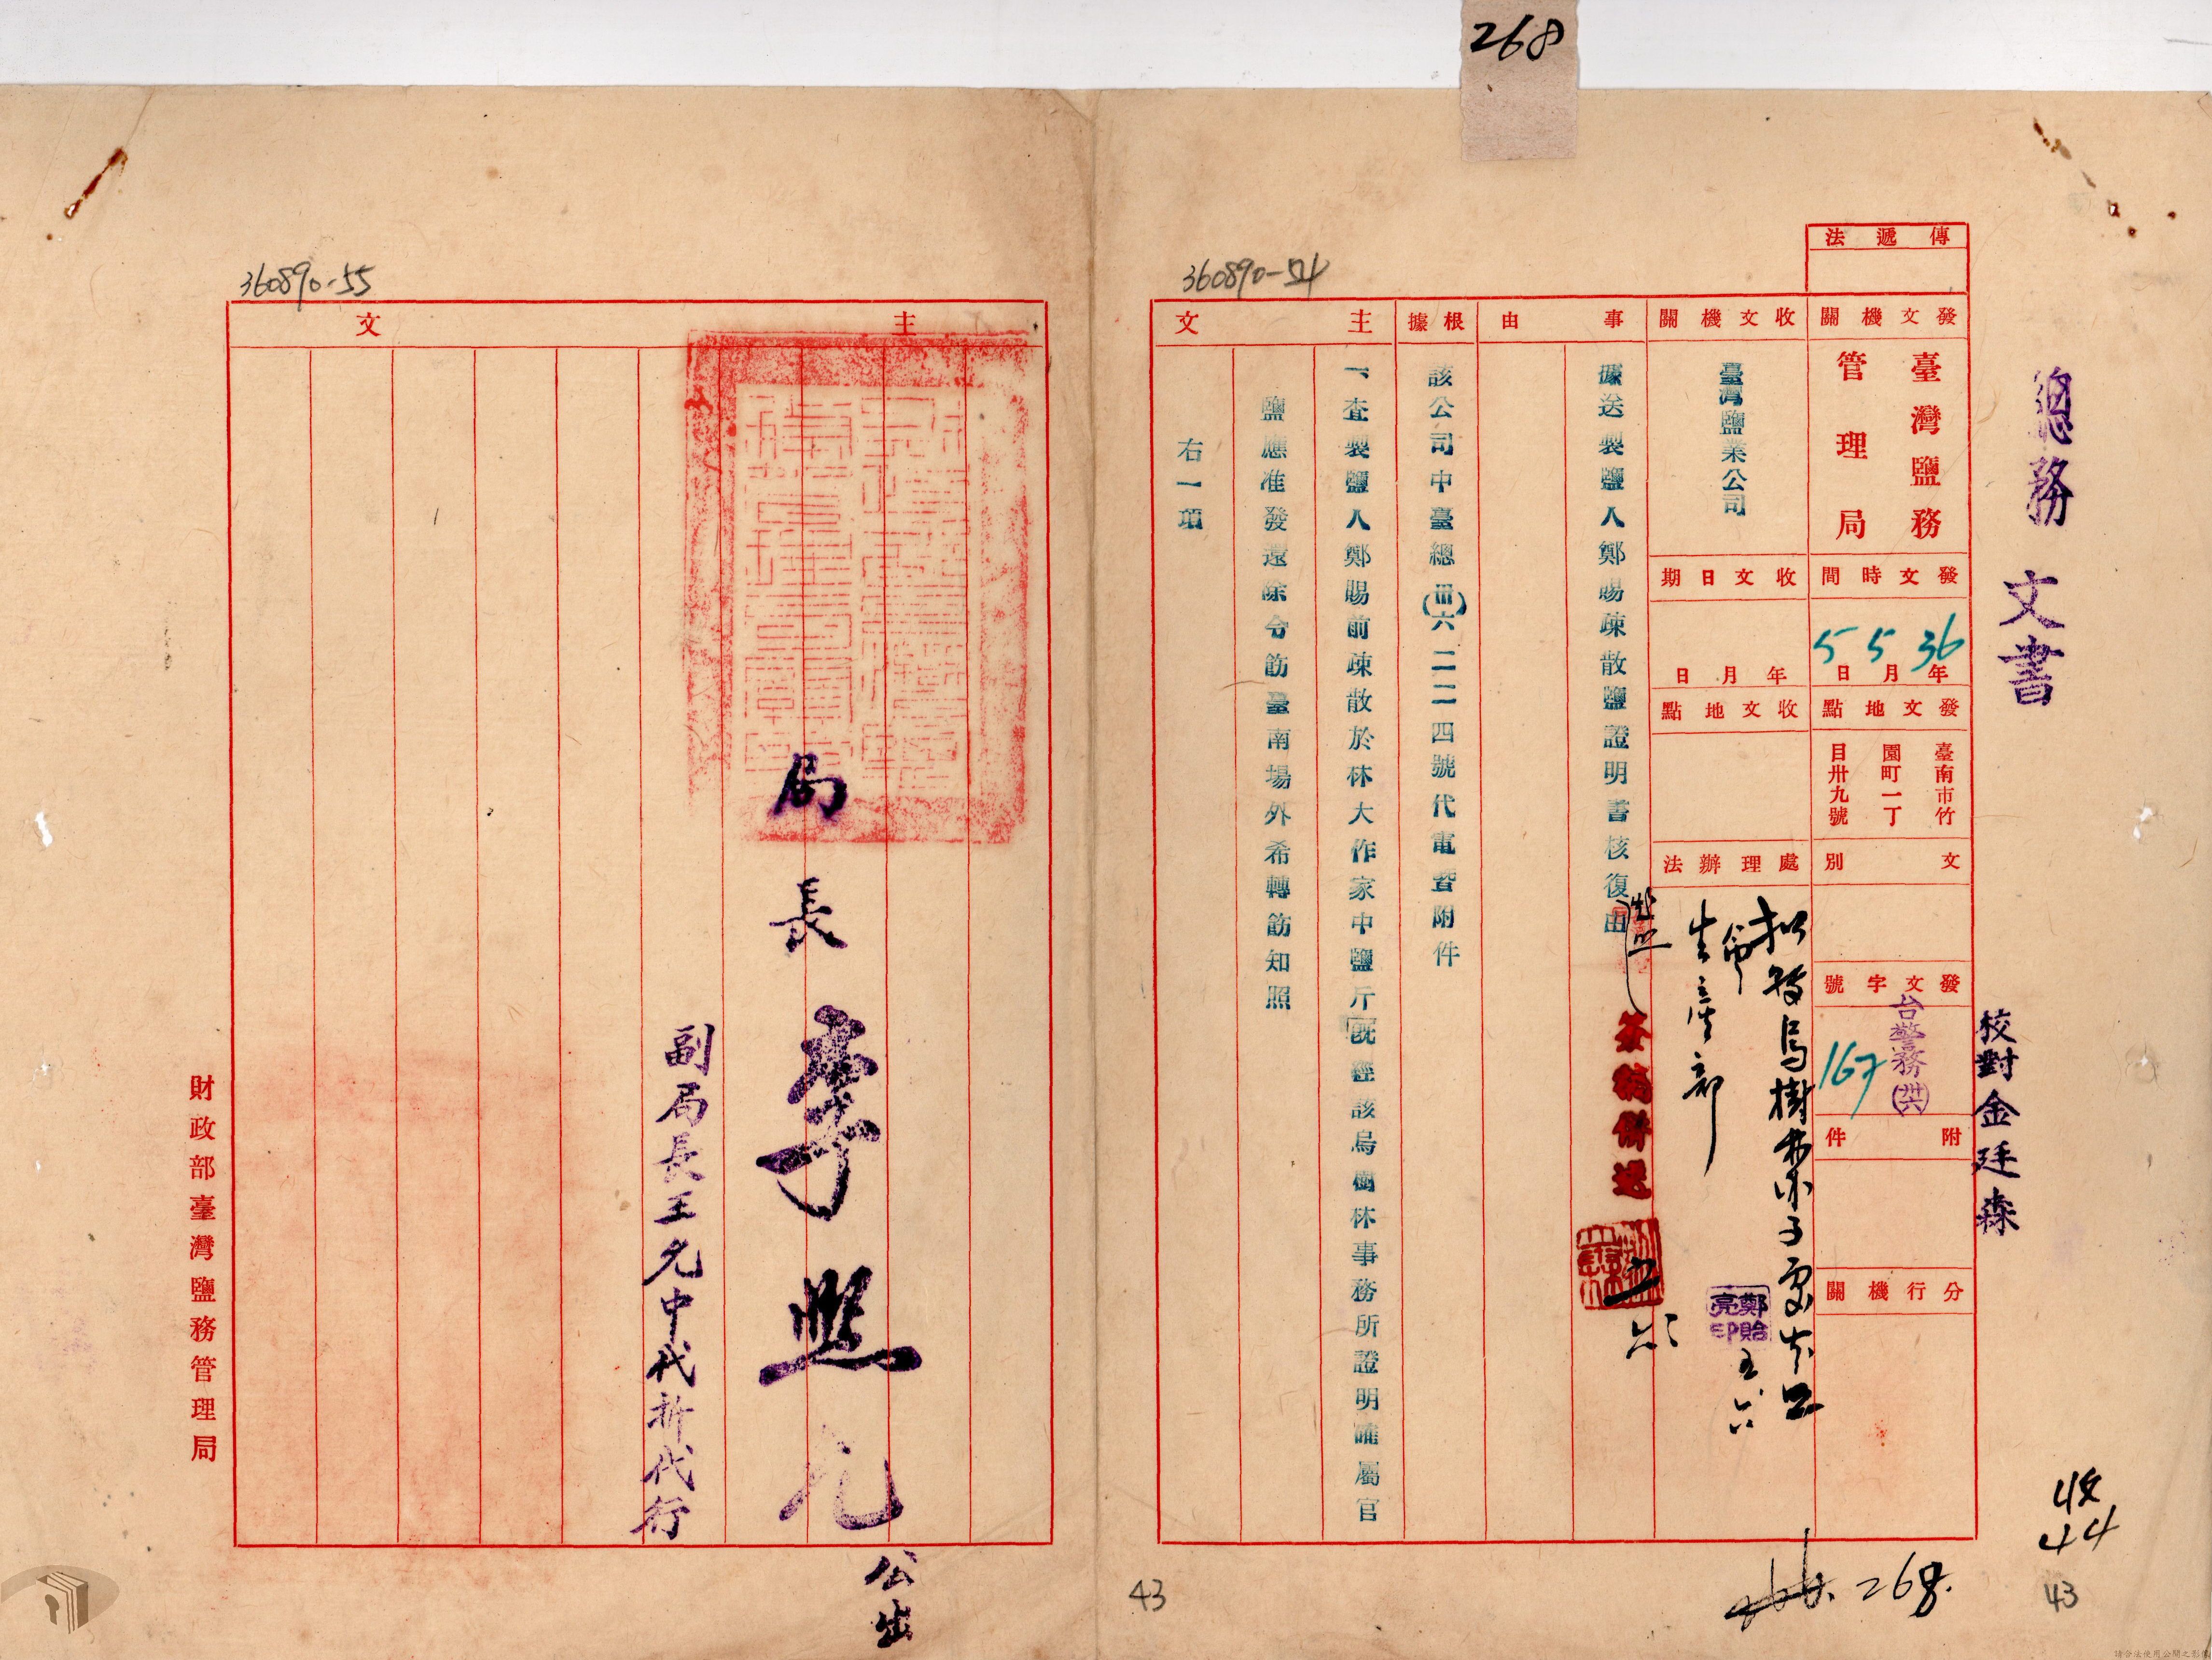 268
360890-54
總務
文書
傳遞法
發文機關
臺灣鹽務
管理局
發文時間
36年5月5日
發文地點
臺南市竹
園町一丁
目卅九號
文別
發文字號
台警務(卅六)
167
附件
分行機關
校對金廷森
收文機關
臺灣鹽業公司
收文日期
年月日
收文地點
處理辦法
生產部
鄭貽亮印
五、六
事由
據送製鹽人鄭賜疎散鹽證明書核復由
簽稿併送
根據
該公司中臺總(卅六)二二二四號代電暨附件
主文
一、查製鹽人鄭賜前疎散於林大作家中鹽斤既經該烏樹林事務所證明確屬官
鹽應准發還除令飭臺南場外希轉飭知照
右一項
收
44
268.
43
43
360890-55
主文
局長李熙元
公出
副局長王允中代拆代行
財政部臺灣鹽務管理局